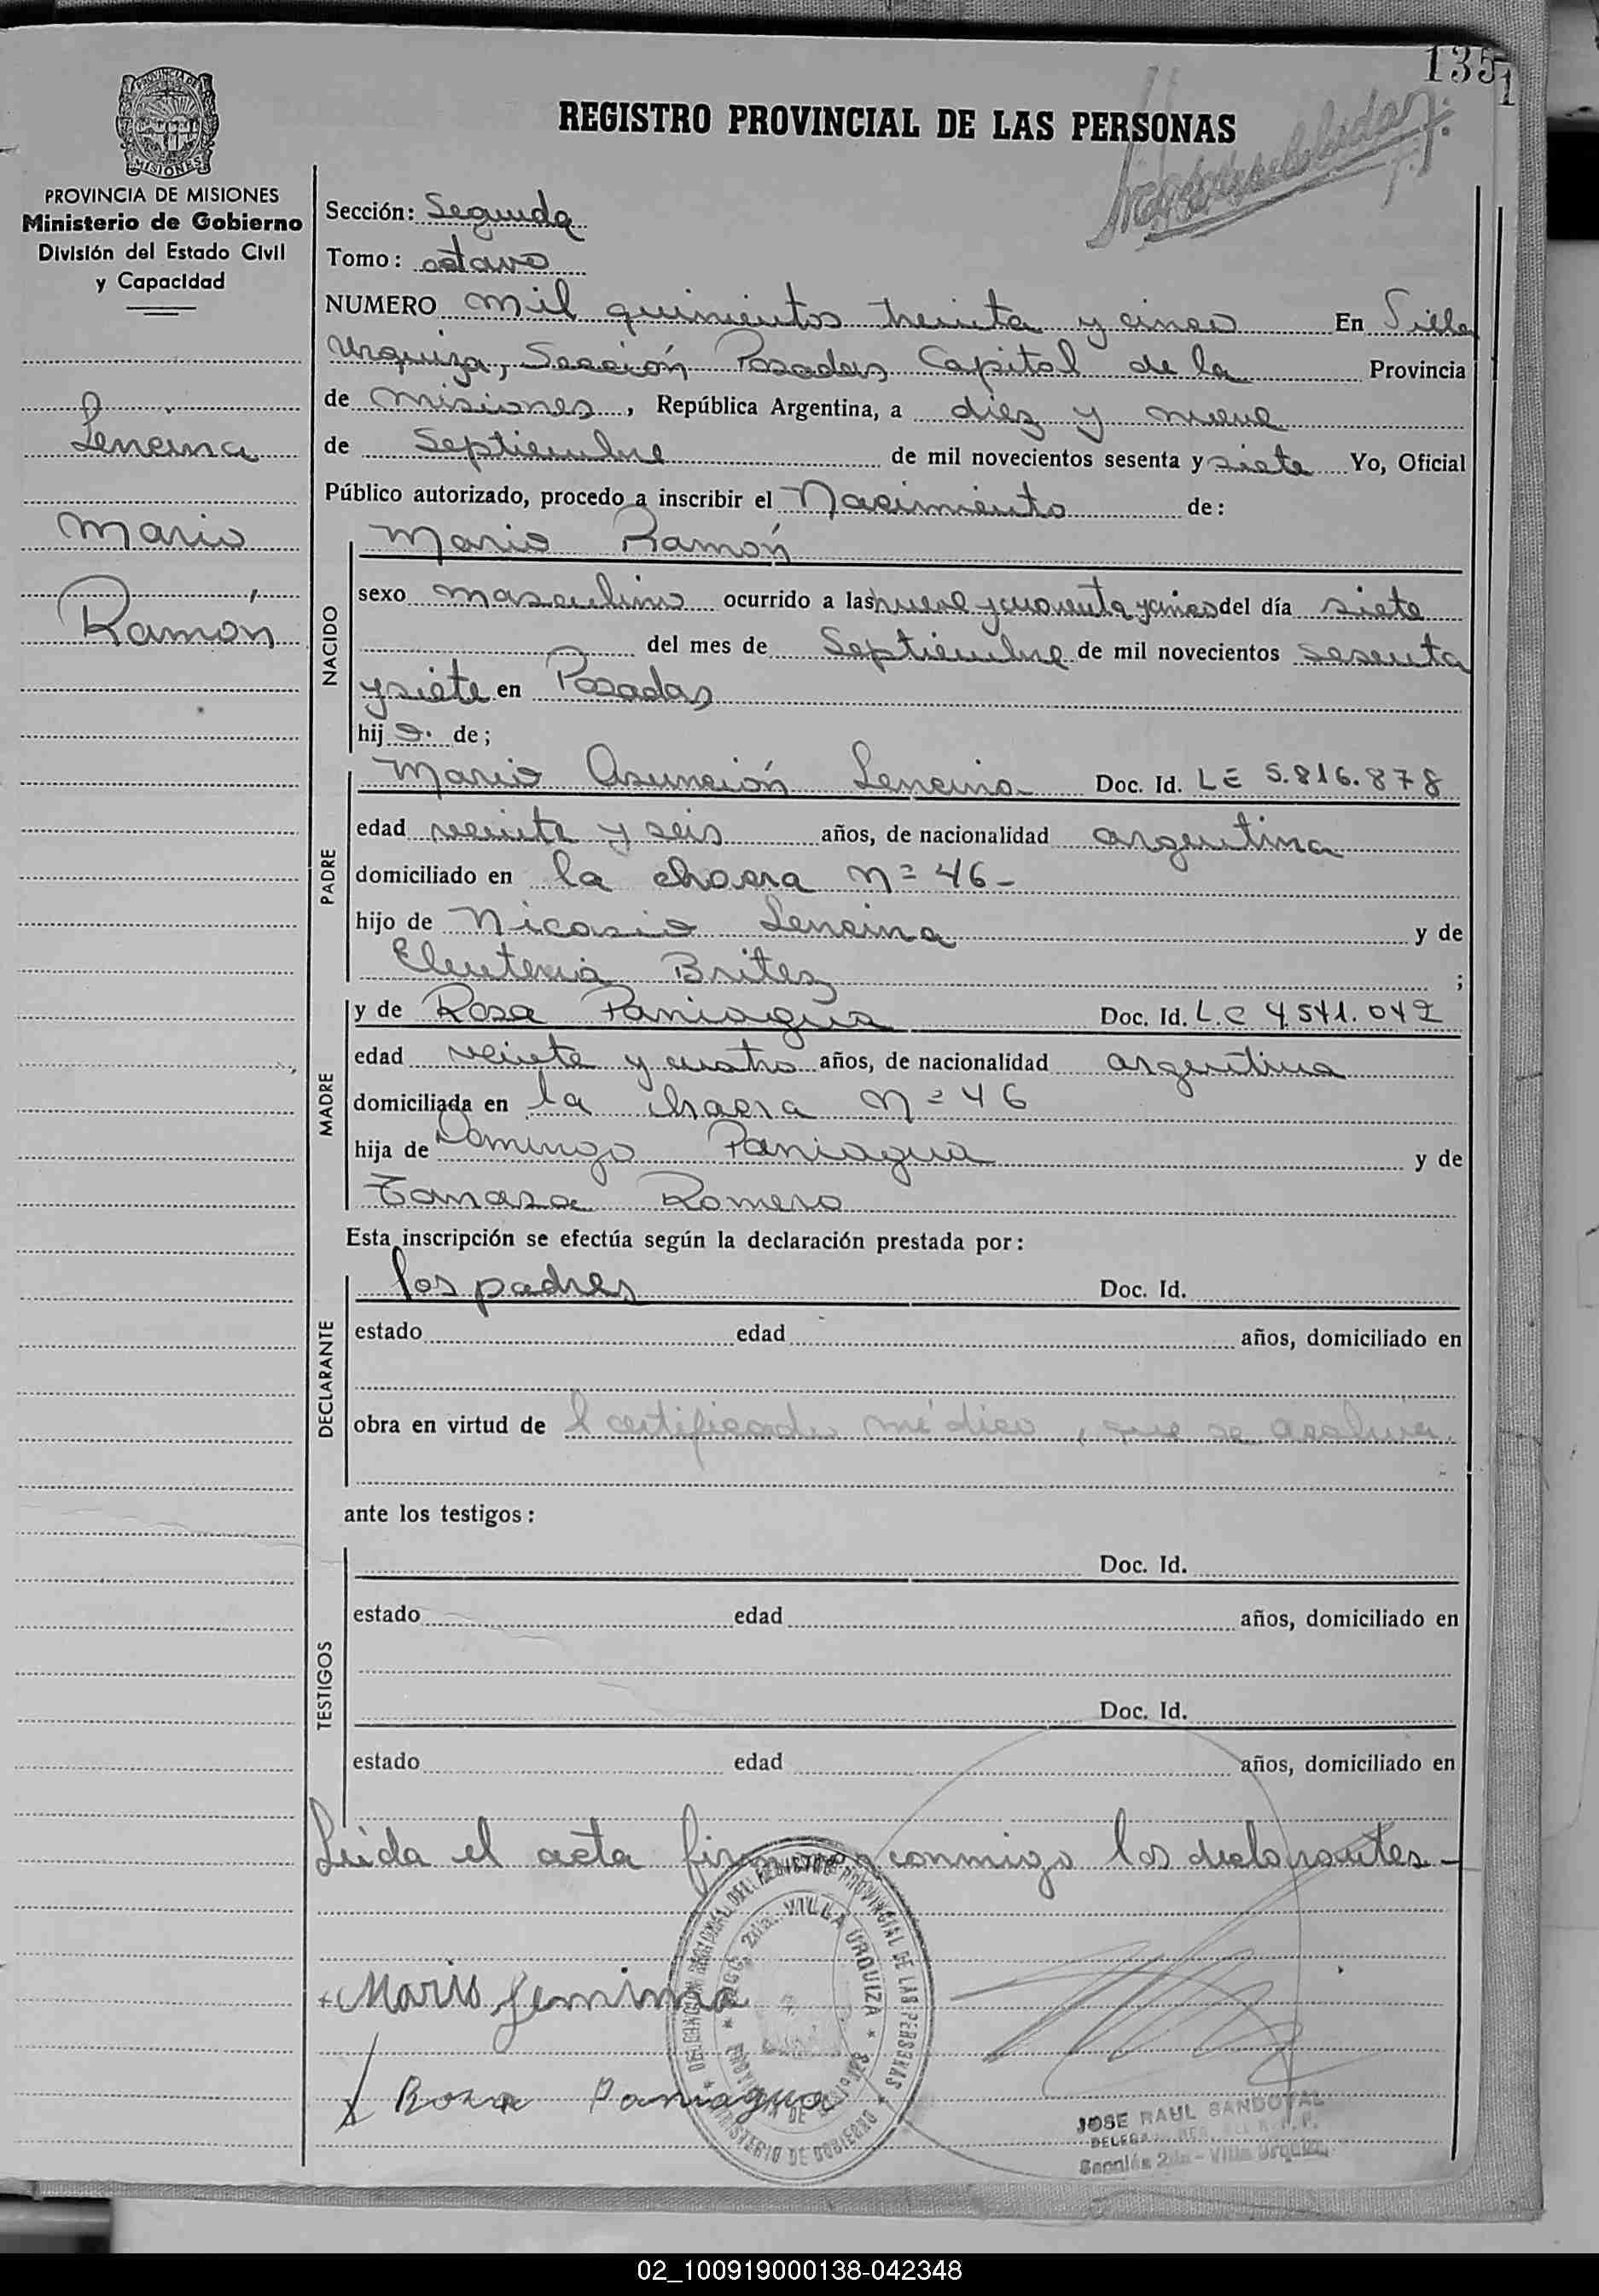 135
1
REGISTRO PROVINCIAL DE LAS PERSONAS
PROVINCIA DE MISIONES
Ministerio de Gobierno
División del Estado Civil
y Capacidad
Lencina
Mario
Ramón
Sección: Segunda
Tomo: octavo
NUMERO mil quinientos treinta y cinco En Villa
Urquiza, Sección Posadas Capital de la Provincia
de misiones, República Argentina, a diez y nueve
de Septiembre de mil novecientos sesenta y siete Yo, Oficial
Público autorizado, procedo a inscribir el Nacimiento de:
NACIDO
Mario Ramón
sexo masculino ocurrido a las nueve y cuarenta y cinco del día siete
del mes de Septiembre de mil novecientos sesenta
y siete en Posadas
hijo. de;
PADRE
Mario Asunción Lencina Doc. Id. LE 5.816.878
edad veinte y seis años, de nacionalidad argentina
domiciliado en la chacra n= 46-
hijo de Nicasio Lencina y de
Eleuteria Britez ;
MADRE
y de Rosa Paniagua Doc. Id. L.C 4.541.042
edad veinte y cuatro años, de nacionalidad argentina
domiciliada en la chacra n= 46
hija de Domingo Paniagua y de
Romero
Esta inscripción se efectúa según la declaración prestada por:
DECLARANTE
los padres Doc. Id.
estado edad años, domiciliado en
obra en virtud de l certificado médico, que se archiva.
ante los testigos:
TESTIGOS
Doc. Id.
estado edad años, domiciliado en
Doc. Id.
estado edad años, domiciliado en
Leída el acta firman conmigo los declarantes-
DELEGACION REGIONAL DEL REGISTRO PROVINCIAL DE LAS PERSONAS
SECC. 2da. VILLA URQUIZA
PROVINCIA DE MISIONES
MINISTERIO DE GOBIERNO
+ Mario Lencina
Rosa Paniagua
JOSE RAUL SANDOVAL
Sección 2da - Villa Urquiza
02_100919000138-042348